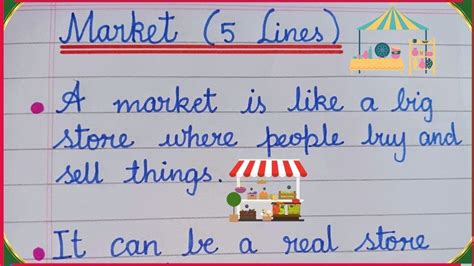 Market (5 Lines)
A market is like a big
store where people buy and
sell things.
It can be a real store